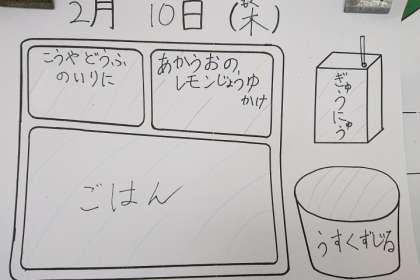 2月 10日(木)
こうやどうふ
のいりに
あかうおの
レモンじょうゆ
かけ
ぎゅうにゅう
ごはん
うすくずじる